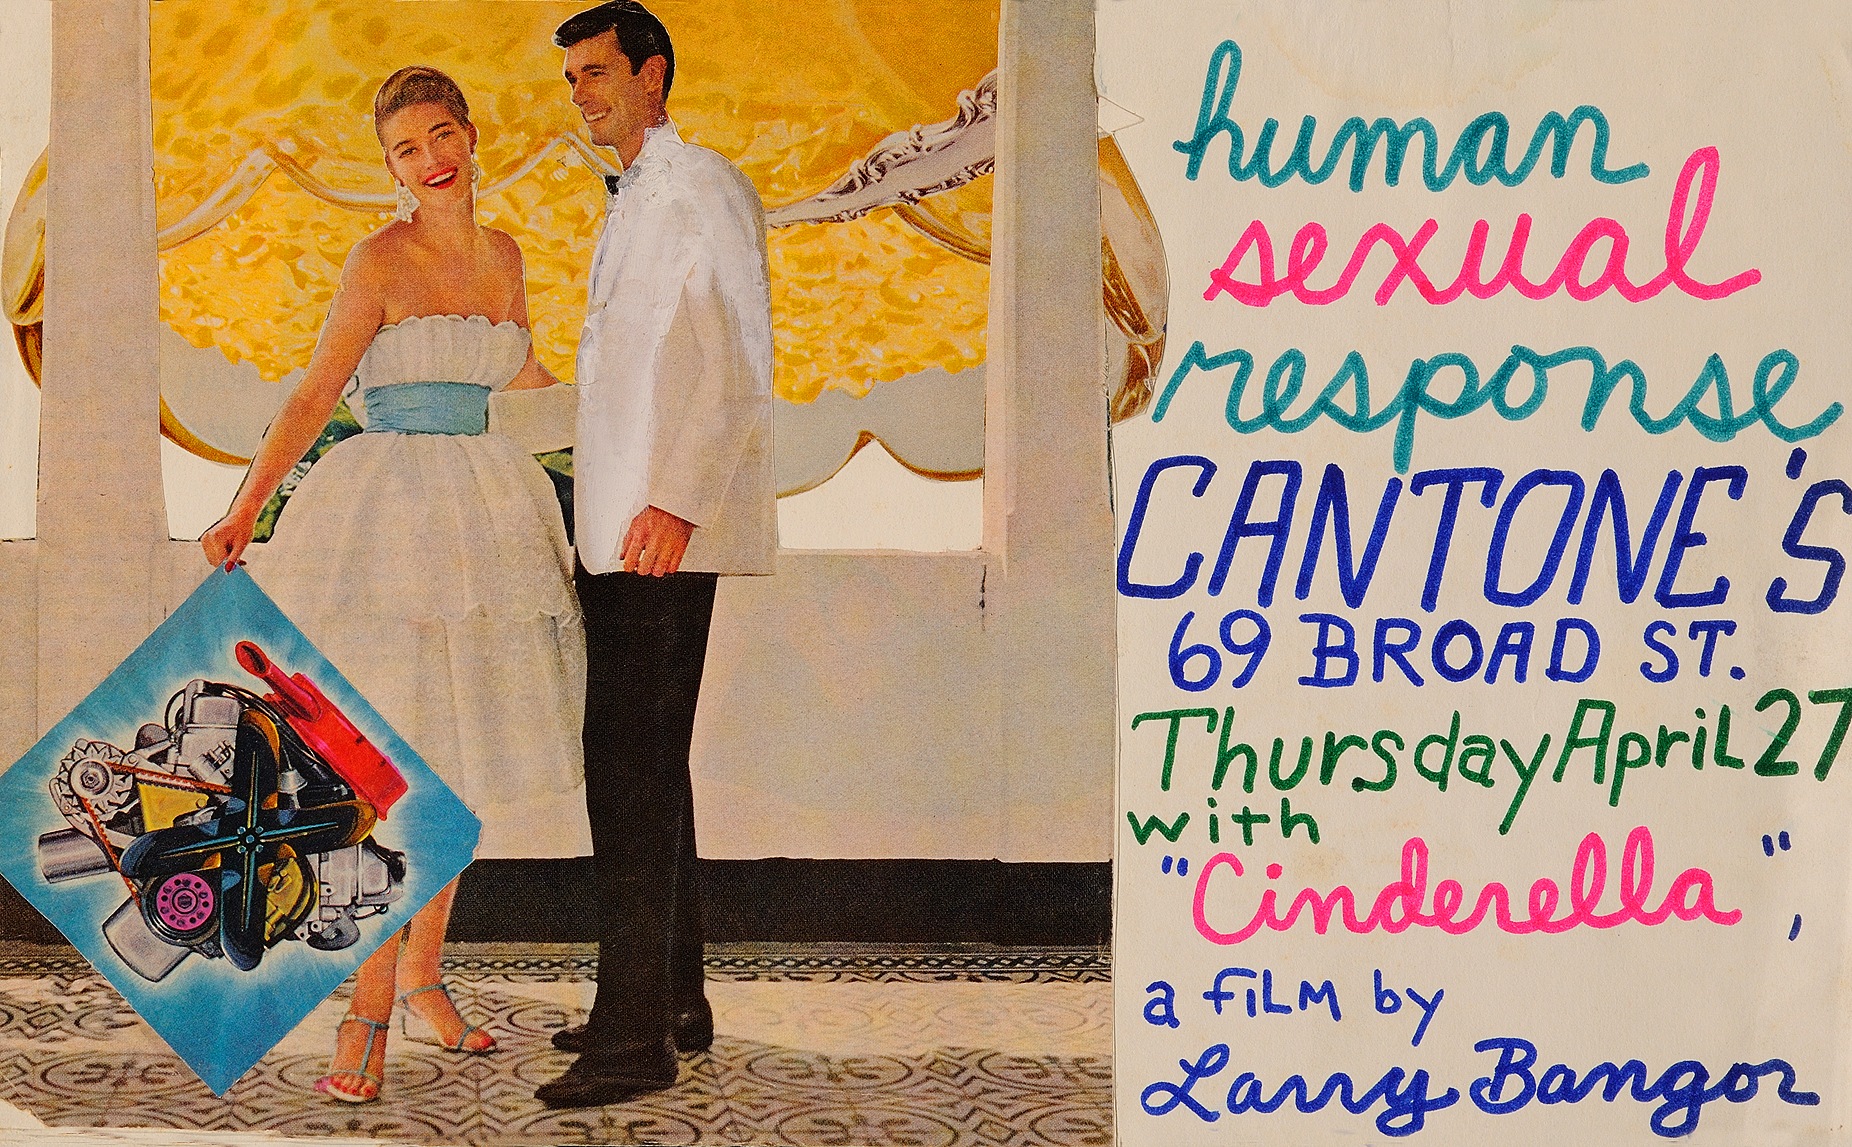 human
sexual
response
CANTONE'S
69 BROAD ST.
Thursday April 27
with
"Cinderella",
a film by
Larry Bangor